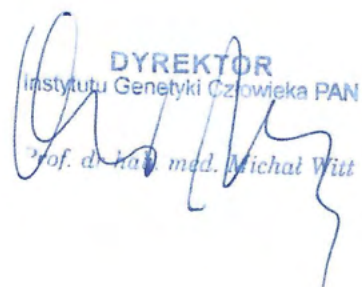 DYREKTOR
Instytutu Genetyki Człowieka PAN
Prof. dr hab. med. Michał Witt